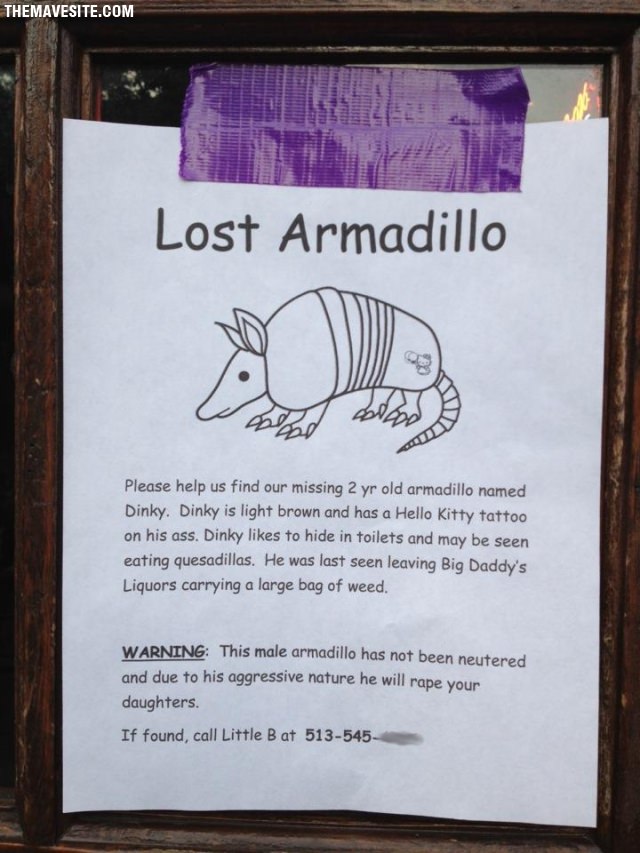 THEMAVESITE.COM
Lost Armadillo
Please help us find our missing 2 yr old armadillo named
Dinky. Dinky is light brown and has a Hello Kitty tattoo
on his ass. Dinky likes to hide in toilets and may be seen
eating quesadillas. He was last seen leaving Big Daddy's
Liquors carrying a large bag of weed.
WARNING: This male armadillo has not been neutered
and due to his aggressive nature he will rape your
daughters.
If found, call Little B at 513-545-